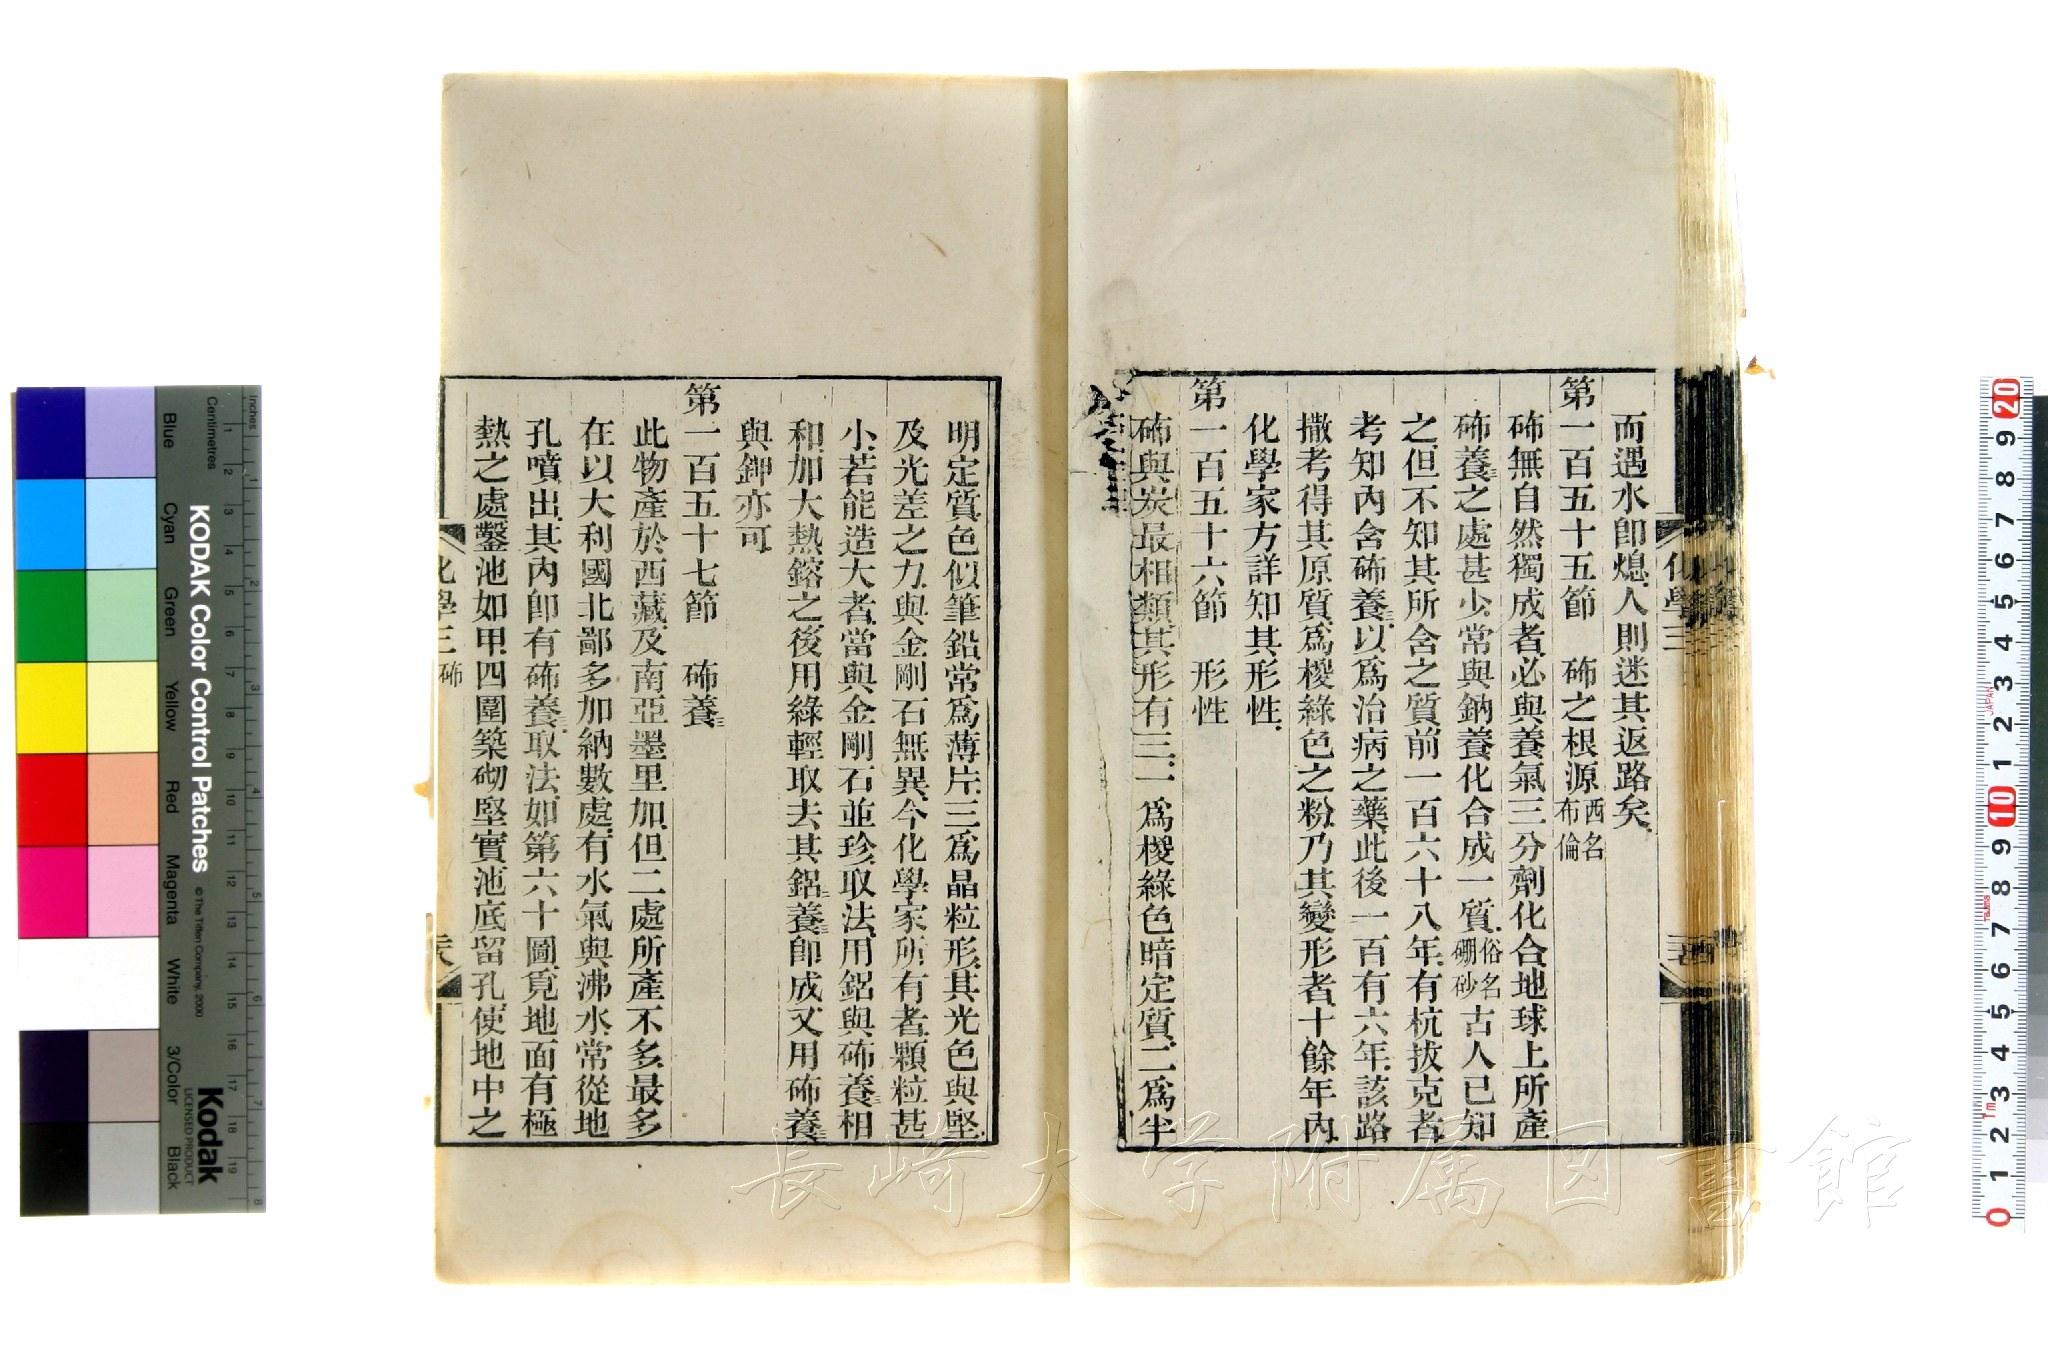 而遇水卽熄人則迷其返路矣
第一百五十五節　硵之根源西名布倫
硵無自然獨成者必與養氣三分劑化合地球上所產
硵養三之處甚少常與鈉養化合成一質俗名硼砂古人已知
之但不知其所含之質前一百六十八年有杭拔克者
考知內含硵養三以爲治病之藥此後一百有六年該路
撒考得其原質爲椶綠色之粉乃其變形者十餘年內
化學家方詳知其形性
第一百五十六節　形性
硵與炭最相類其形有三一爲椶綠色暗定質二爲半
化學三
明定質色似筆鉛常爲薄片三爲晶粒形其光色與堅
及光差之力與金剛石無異今化學家所有者顆粒甚
小若能造大者當與金剛石並珍取法用鋁與硵養三相
和加大熱鎔之後用綠輕取去其鋁二養三卽成又用硵養三
與鉀亦可
第一百五十七節　硵養三
此物產於西藏及南亞墨里加但二處所產不多最多
在以大利國北鄙多加納數處有水氣與沸水常從地
孔噴出其內卽有硵養三取法如第六十圖覓地面有極
熱之處鑿池如甲四圍築砌堅實池底留孔使地中之
化學三　硵
長崎大学附属図書館
KODAK Color Control Patches
© The Tiffen Company, 2000
Kodak
LICENSED PRODUCT
Inches
Centimetres
Blue
Cyan
Green
Yellow
Red
Magenta
White
3/Color
Black